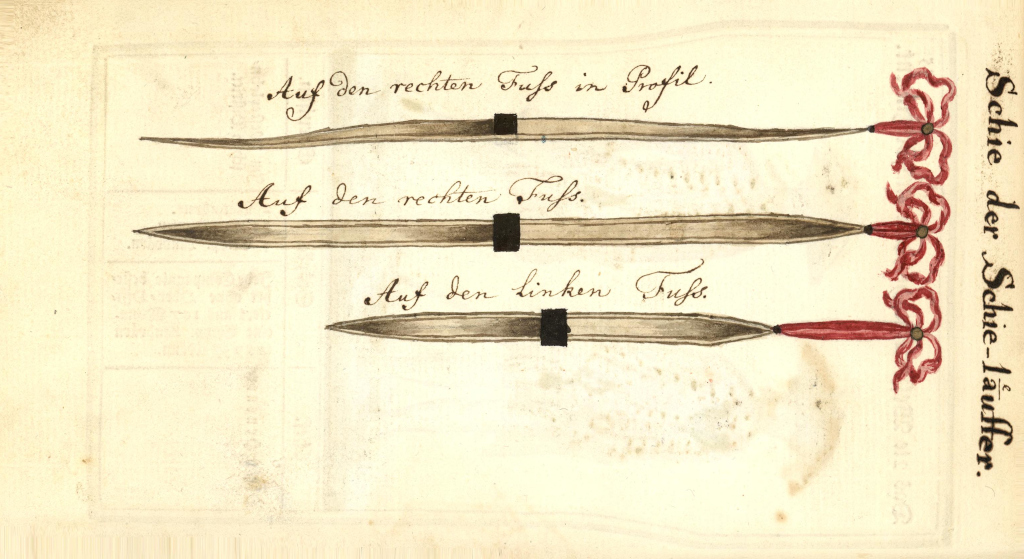 Auf den rechten Fuss in Profil.
Auf den rechten Fuss.
Auf den linken Fuss.
Schie der Schie-laͤuffer.